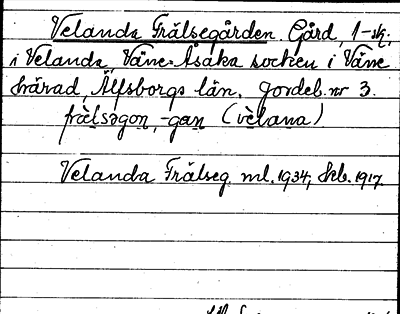 Velanda Frälsegården Gård, 1-sk;
i Velanda Väne-Åsaka socken i Väne
härad, Älfsborgs län. Jordeb. nr 3.
frälsəgon, -gan (vèlana)
Velanda Frälseg ml. 1934; Skb. 1917.